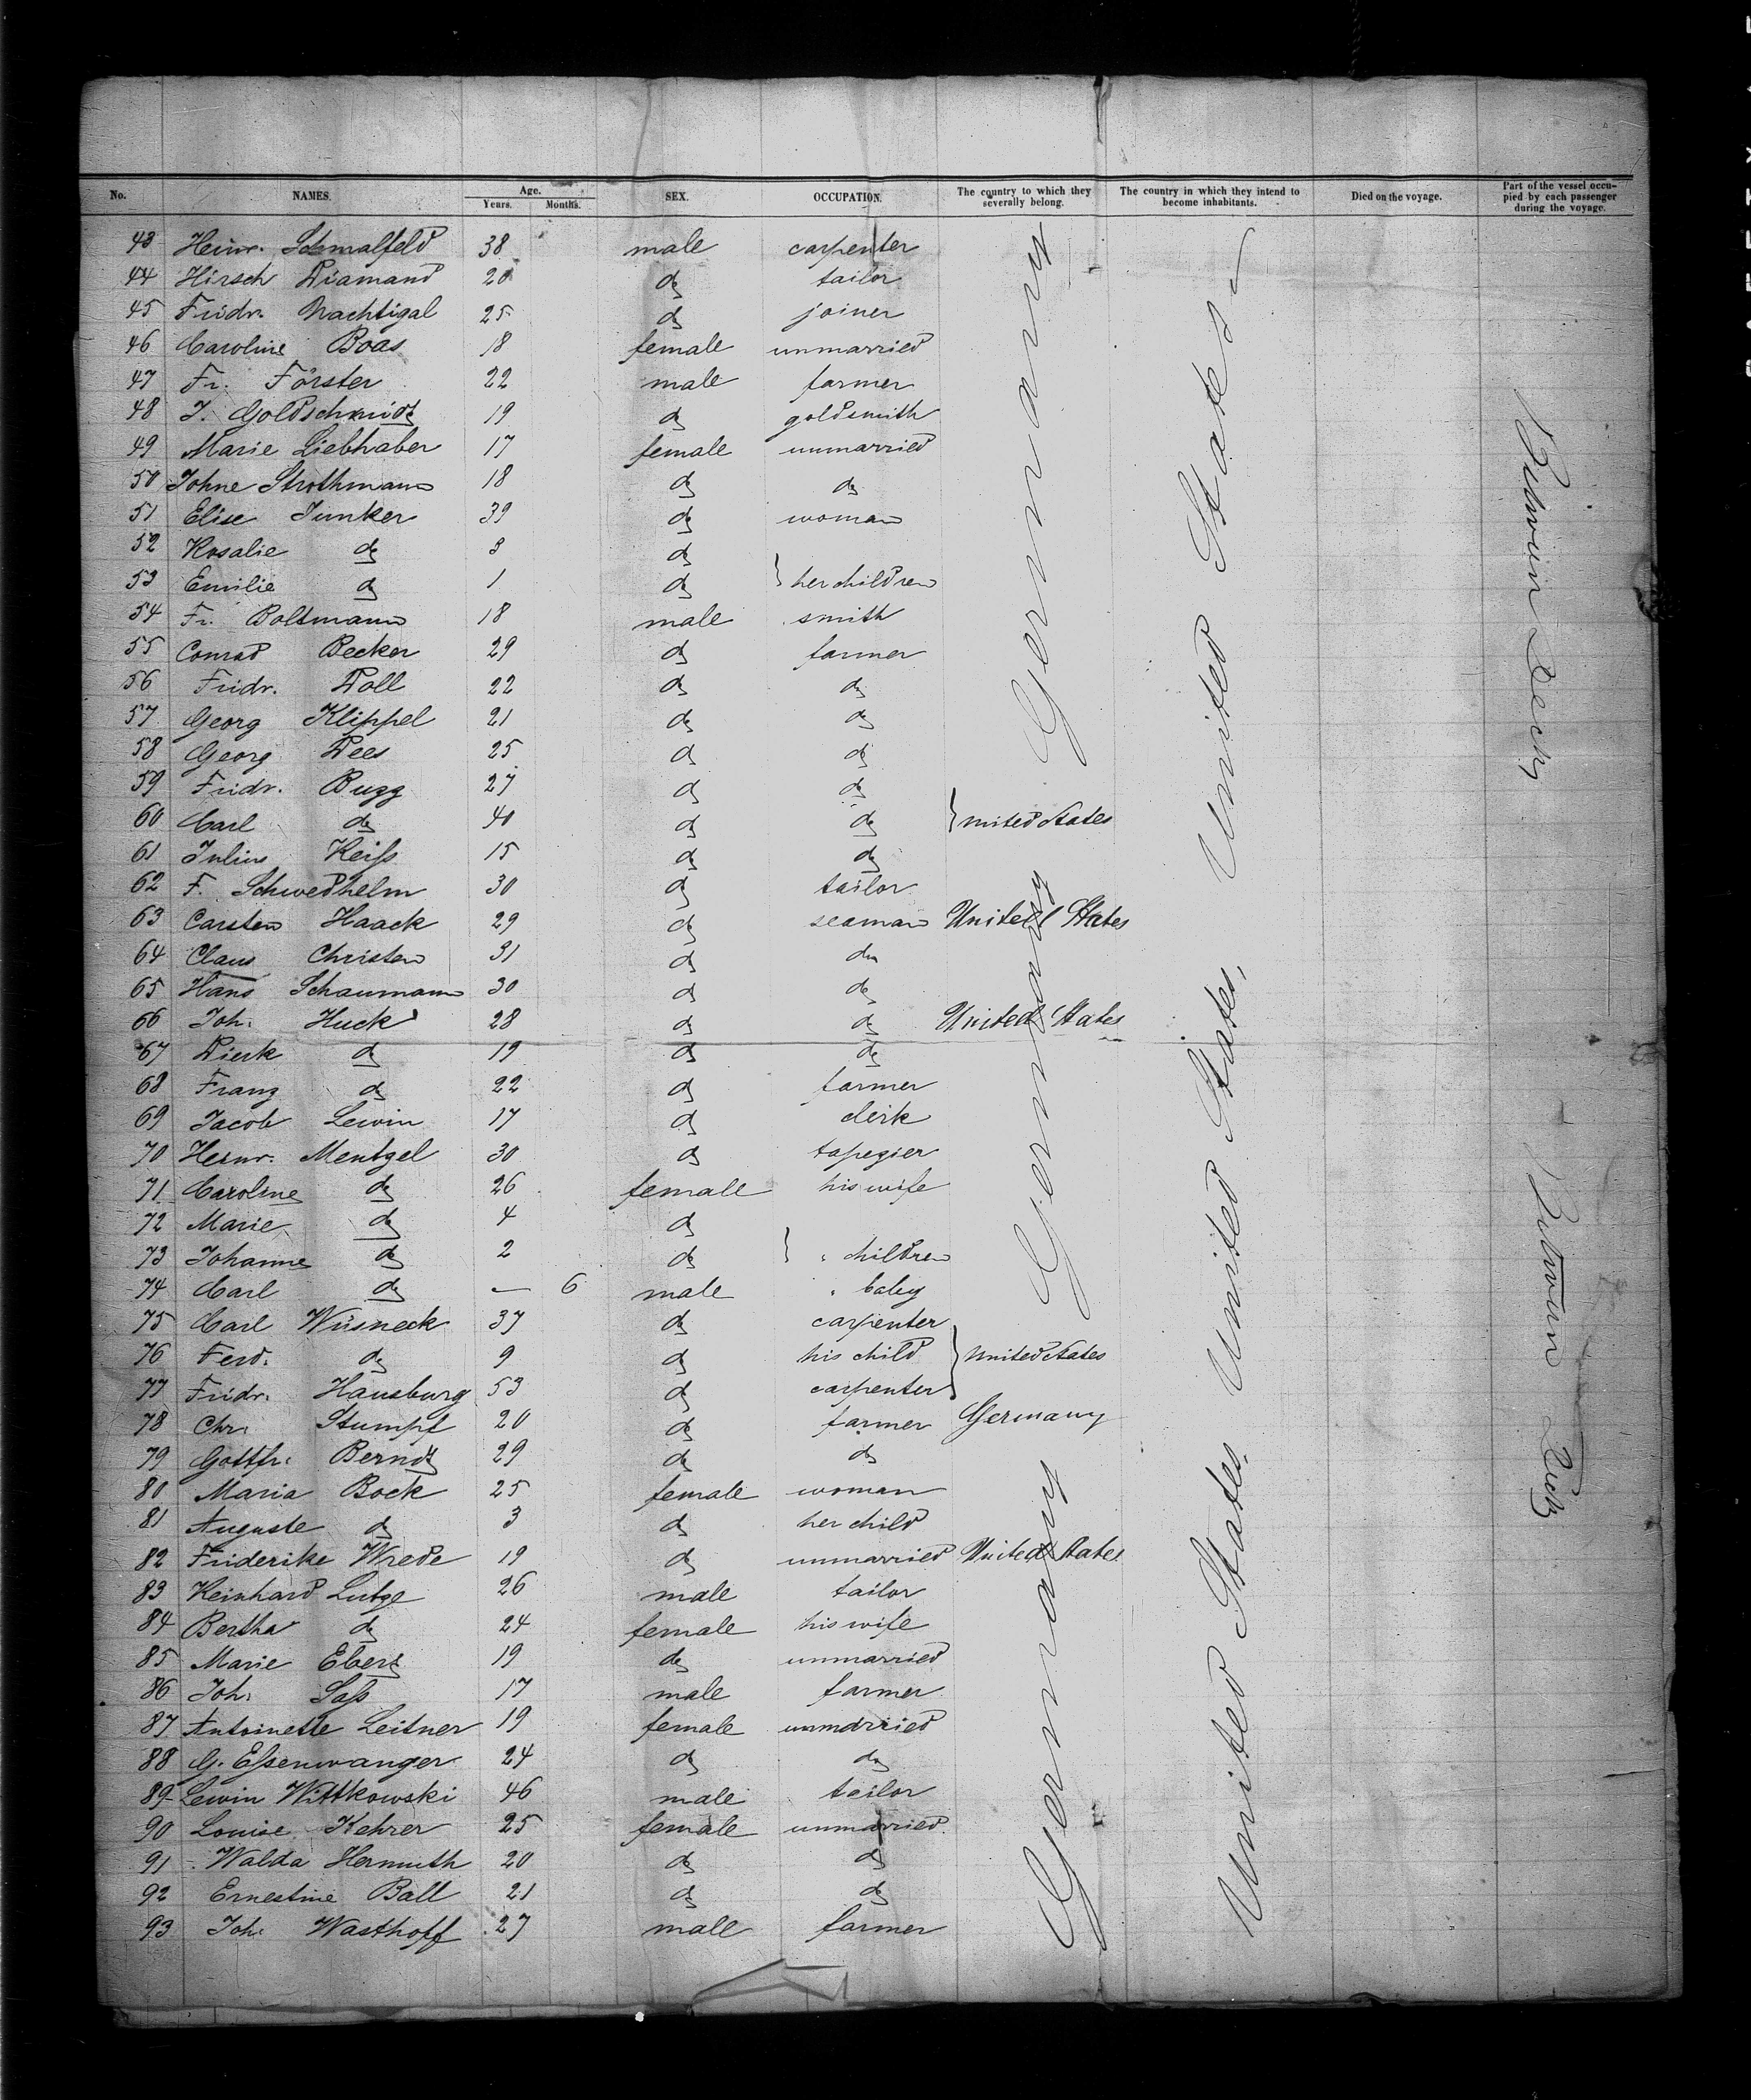 No. NAMES. Age. Years. Months. SEX. OCCUPATION. The country to which they severally belong. The country in which they intend to become inhabitants. Died on the voyage. Part of the vessel occupied by each passenger during the voyage.
43 Heinr. Schmalfeld 38 male carpenter
44 Hirsch Diamand 20 do tailor
45 Fridr. Nachtigal 25 do joiner
46 Caroline Boas 18 female unmarried
47 Fr. Förster 22 male farmer
48 J. Goldschmidt 19 do goldsmith
49 Marie Liebhaber 17 female unmarried
50 Johne Strothmann 18 do do
51 Elise Junker 39 do woman
52 Rosalie do 3 do
53 Emilie do 1 do } her children
54 Fr. Boltmann 18 male smith
55 Conrad Becker 29 do farmer
56 Fridr. Doll 22 do do
57 Georg Klippel 21 do do
58 Georg Dees 25 do do
59 Fridr. Bugg 27 do do
60 Carl do 40 do do } United States
61 Julius Reiß 15 do do
62 F. Schwedhelm 30 do tailor
63 Carsten Haack 29 do seaman United States
64 Claus Christen 31 do do
65 Hans Schaumann 30 do do
66 Joh. Huck 28 do do United States
67 Dierk do 19 do do
68 Franz do 22 do farmer
69 Jacob Lewin 17 do clerk
70 Heinr. Mentzel 30 do tapezier
71 Caroline do 26 female his wife
72 Marie do 4 do
73 Johanne do 2 do } " children
74 Carl do — 6 male " baby
75 Carl Wüsneck 37 do carpenter
76 Ferd. do 9 do his child } United States
77 Fridr. Hausburg 53 do carpenter
78 Chr. Stumpf 20 do farmer Germany
79 Gottfr. Berndt 29 do do
80 Maria Bock 25 female woman
81 Auguste do 3 do her child
82 Friderike Wrede 19 do unmarried United States
83 Reinhard Lutze 26 male tailor
84 Bertha do 24 female his wife
85 Marie Ebert 19 do unmarried
86 Joh. Saß 17 male farmer
87 Antoinette Leitner 19 female unmarried
88 G. Eßenwanger 24 do do
89 Lewin Wittkowski 46 male tailor
90 Louise Kehrer 25 female unmarried
91 Walda Hermuth 20 do do
92 Ernestine Ball 21 do do
93 Joh. Wasthoff 27 male farmer
Germany Germany Germany
United States United States, United States,
Between Deck Between Deck